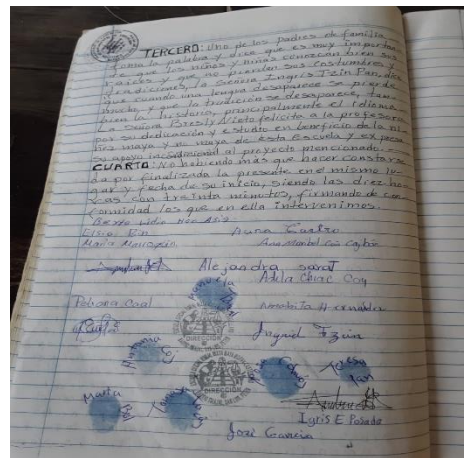 TERCERO: Uno de los padres de familia
toma la palabra y dice que es muy importan-
te que los niños y niñas conozcan bien sus
raíces y que no pierdan sus costumbres y
tradiciones, la señora Ingris Tzin Pan, dice
que cuando una lengua desaparece se pierde
mucho y que la tradición se desaparece, tam-
bien la historia, principalmente el idioma
La señora Bresly felicita a la profesora
por su actuación y estudio en beneficio de la ni-
ñez maya y no maya de esta escuela y expresa
su apoyo incondicional al proyecto mencionado.
CUARTO: No habiendo más que hacer constar se
da por finalizada la presente en el mismo lu-
gar y fecha de su inicio, siendo las diez ho-
ras con treinta minutos, firmando de con-
formidad los que en ella intervenimos.
Elisa Aura Castro
María Ana
Alejandra sarat
Manuela Adila Chiac Coy
Coal
Ingrid Tzin
DIRECCIÓN
Teresa
DIRECCIÓN
Marta
Igris E Posada
José Garcia